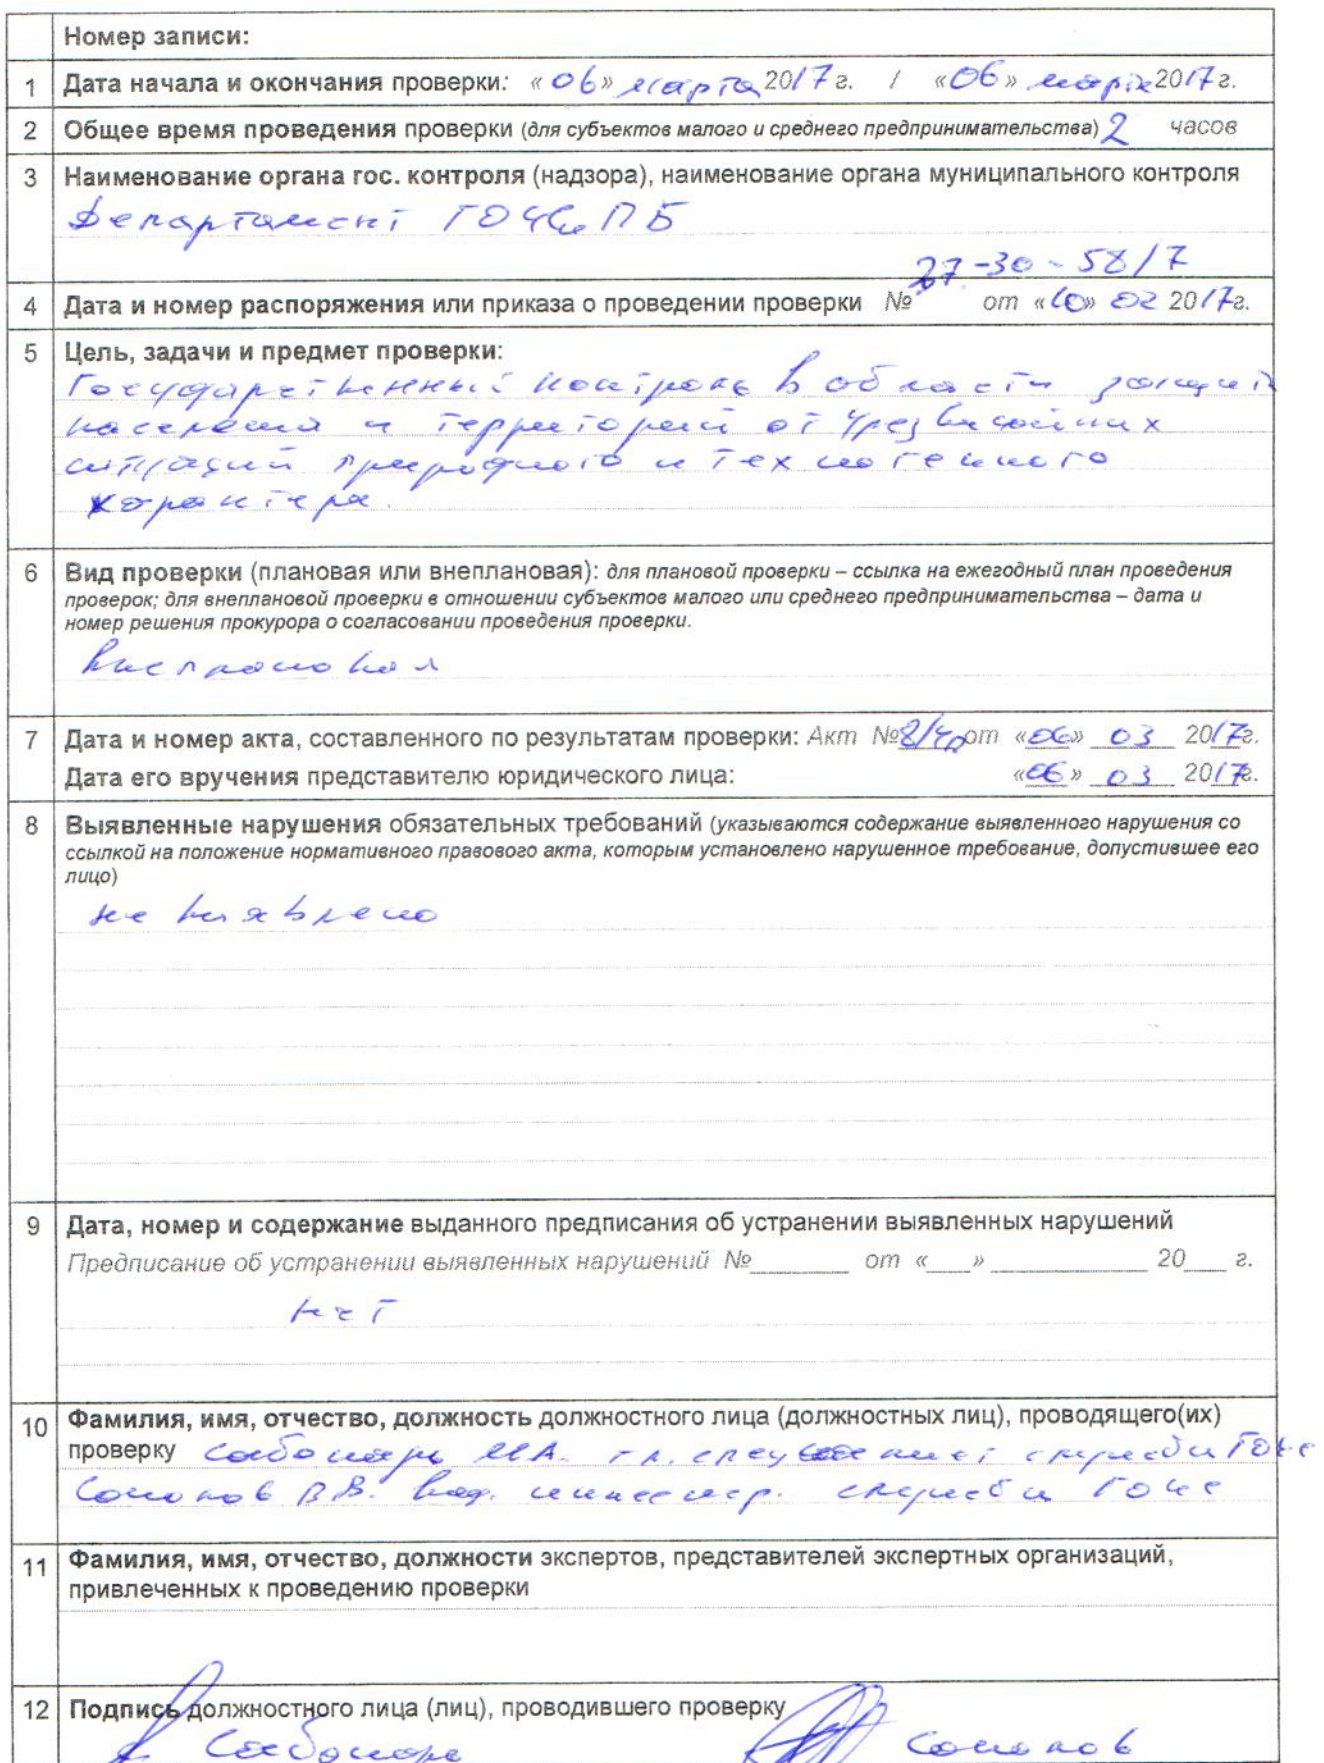 Номер записи:
1 Дата начала и окончания проверки: «06» марта 2017 г. / «06» марта 2017 г.
2 Общее время проведения проверки (для субъектов малого и среднего предпринимательства) 2 часов
3 Наименование органа гос. контроля (надзора), наименование органа муниципального контроля
Департамент ГОЧСиПБ
27-30-58/7
4 Дата и номер распоряжения или приказа о проведении проверки № от «10» 02 2017г.
5 Цель, задачи и предмет проверки:
Государственный контроль в области защиты
населения и территорий от чрезвычайных
ситуаций природного и техногенного
характера.
6 Вид проверки (плановая или внеплановая): для плановой проверки – ссылка на ежегодный план проведения
проверок; для внеплановой проверки в отношении субъектов малого или среднего предпринимательства – дата и
номер решения прокурора о согласовании проведения проверки.
внеплановая
7 Дата и номер акта, составленного по результатам проверки: Акт № от «06» 03 2017г.
Дата его вручения представителю юридического лица: «06» 03 2017г.
8 Выявленные нарушения обязательных требований (указываются содержание выявленного нарушения со
ссылкой на положение нормативного правового акта, которым установлено нарушенное требование, допустившее его
лицо)
не выявлено
9 Дата, номер и содержание выданного предписания об устранении выявленных нарушений
Предписание об устранении выявленных нарушений №_______ от «___» ____________ 20___ г.
нет
10 Фамилия, имя, отчество, должность должностного лица (должностных лиц), проводящего(их)
проверку М.А. гл. специалист службы
В.В. вед. инженер. службы
11 Фамилия, имя, отчество, должности экспертов, представителей экспертных организаций,
привлеченных к проведению проверки
12 Подпись должностного лица (лиц), проводившего проверку